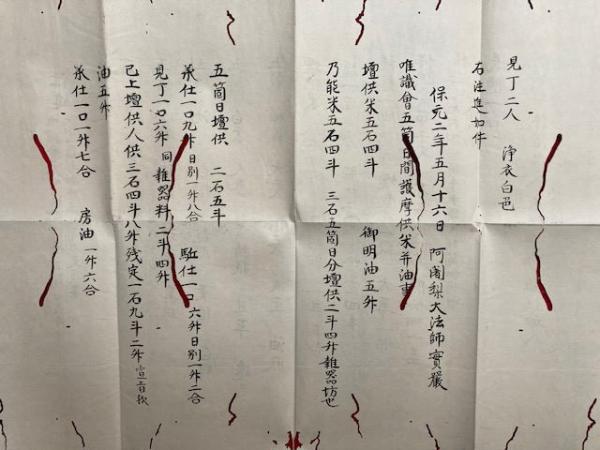 見丁二人　淨衣白色
右注進如件
保元二年五月十六日　阿闍梨大法師實嚴
唯識會五箇日間護摩供米并油事
壇供米五石四斗　御明油五升
乃能米五石四斗　三石五箇日分壇供二斗四升雜器坊也
五箇日壇供　二石五斗
承仕一口九升　日別一升八合　駈仕一口　六升日別一升二合
見丁一口六升　同　雜器料二斗四升
已上壇供人供三石四斗八升残定一石九斗二升
油五升
承仕一口一升七合　房油一升六合